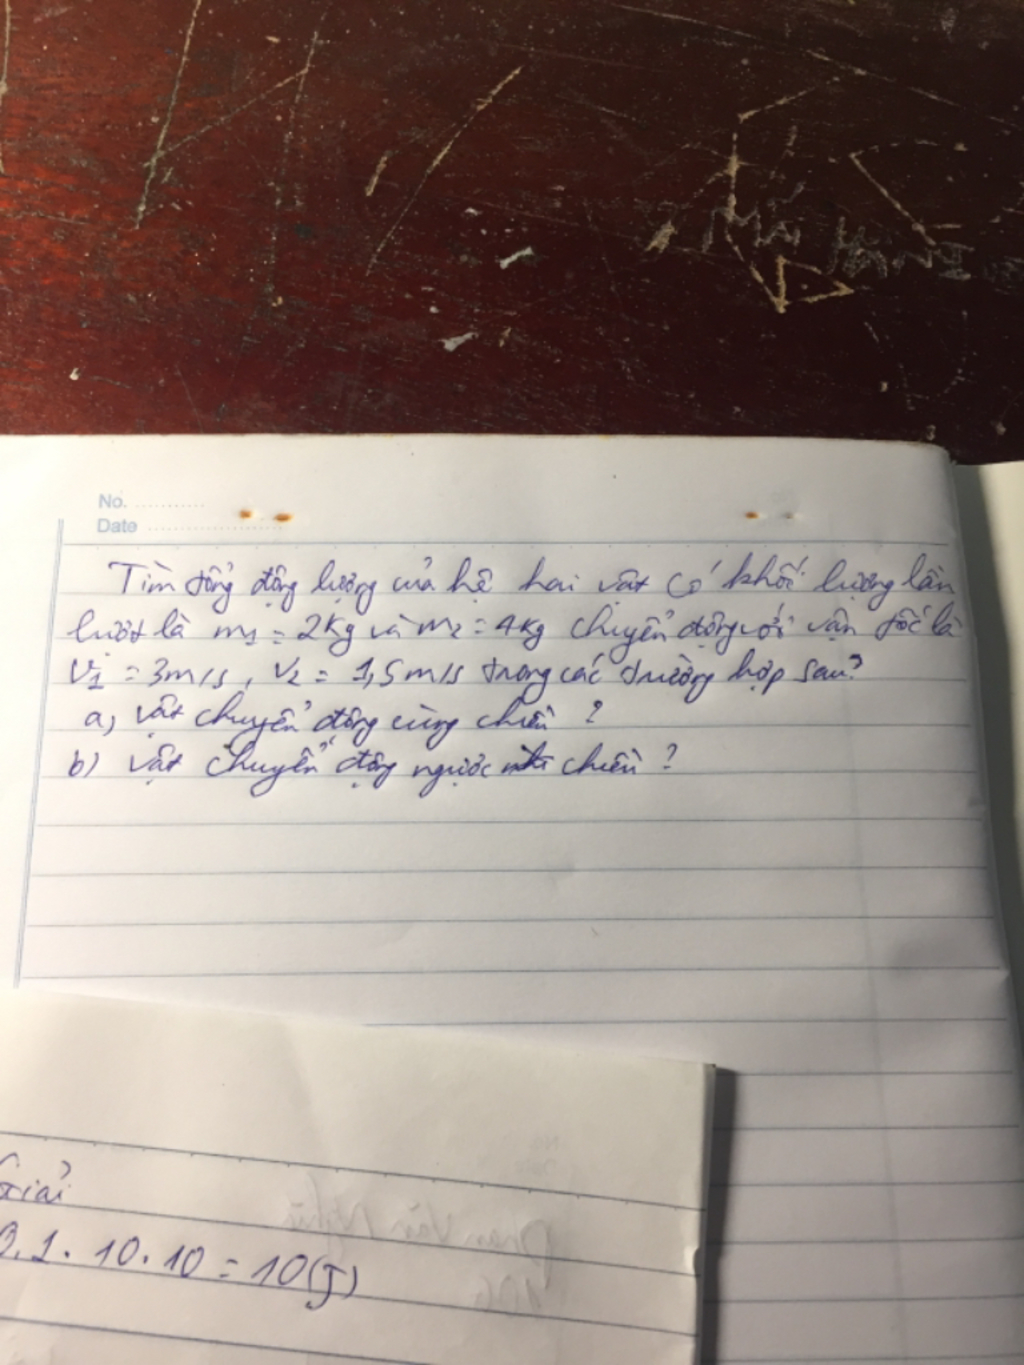 MAI
No. ...........
Date ....................
Tìm tổng động lượng của hệ hai vật có khối lượng lần
lượt là m₁ = 2kg và m₂ = 4kg chuyển động với vận tốc là
V₁ = 3m/s, V₂ = 1,5m/s trong các trường hợp sau?
a, vật chuyển động cùng chiều ?
b) vật chuyển động ngược chiều ?
Giải
0,1 . 10 . 10 = 10(J)
Phan Văn Nghĩa
10G